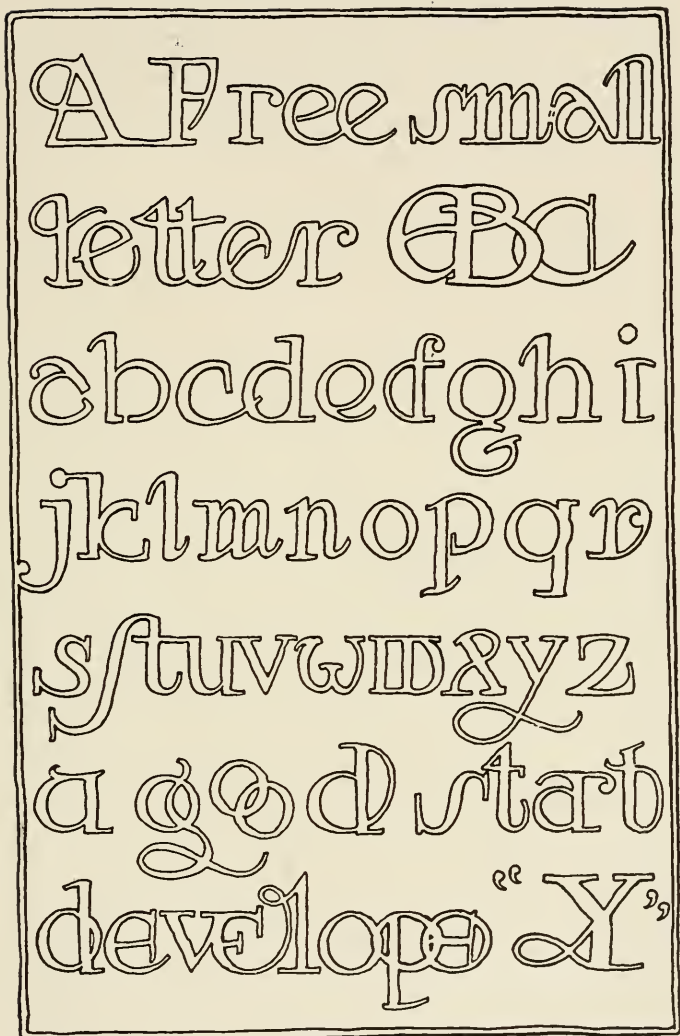 A Free small
letter ABC
abcdefghi
jklmnopqr
sſtuvwmxyz
a good start
develope “Y”